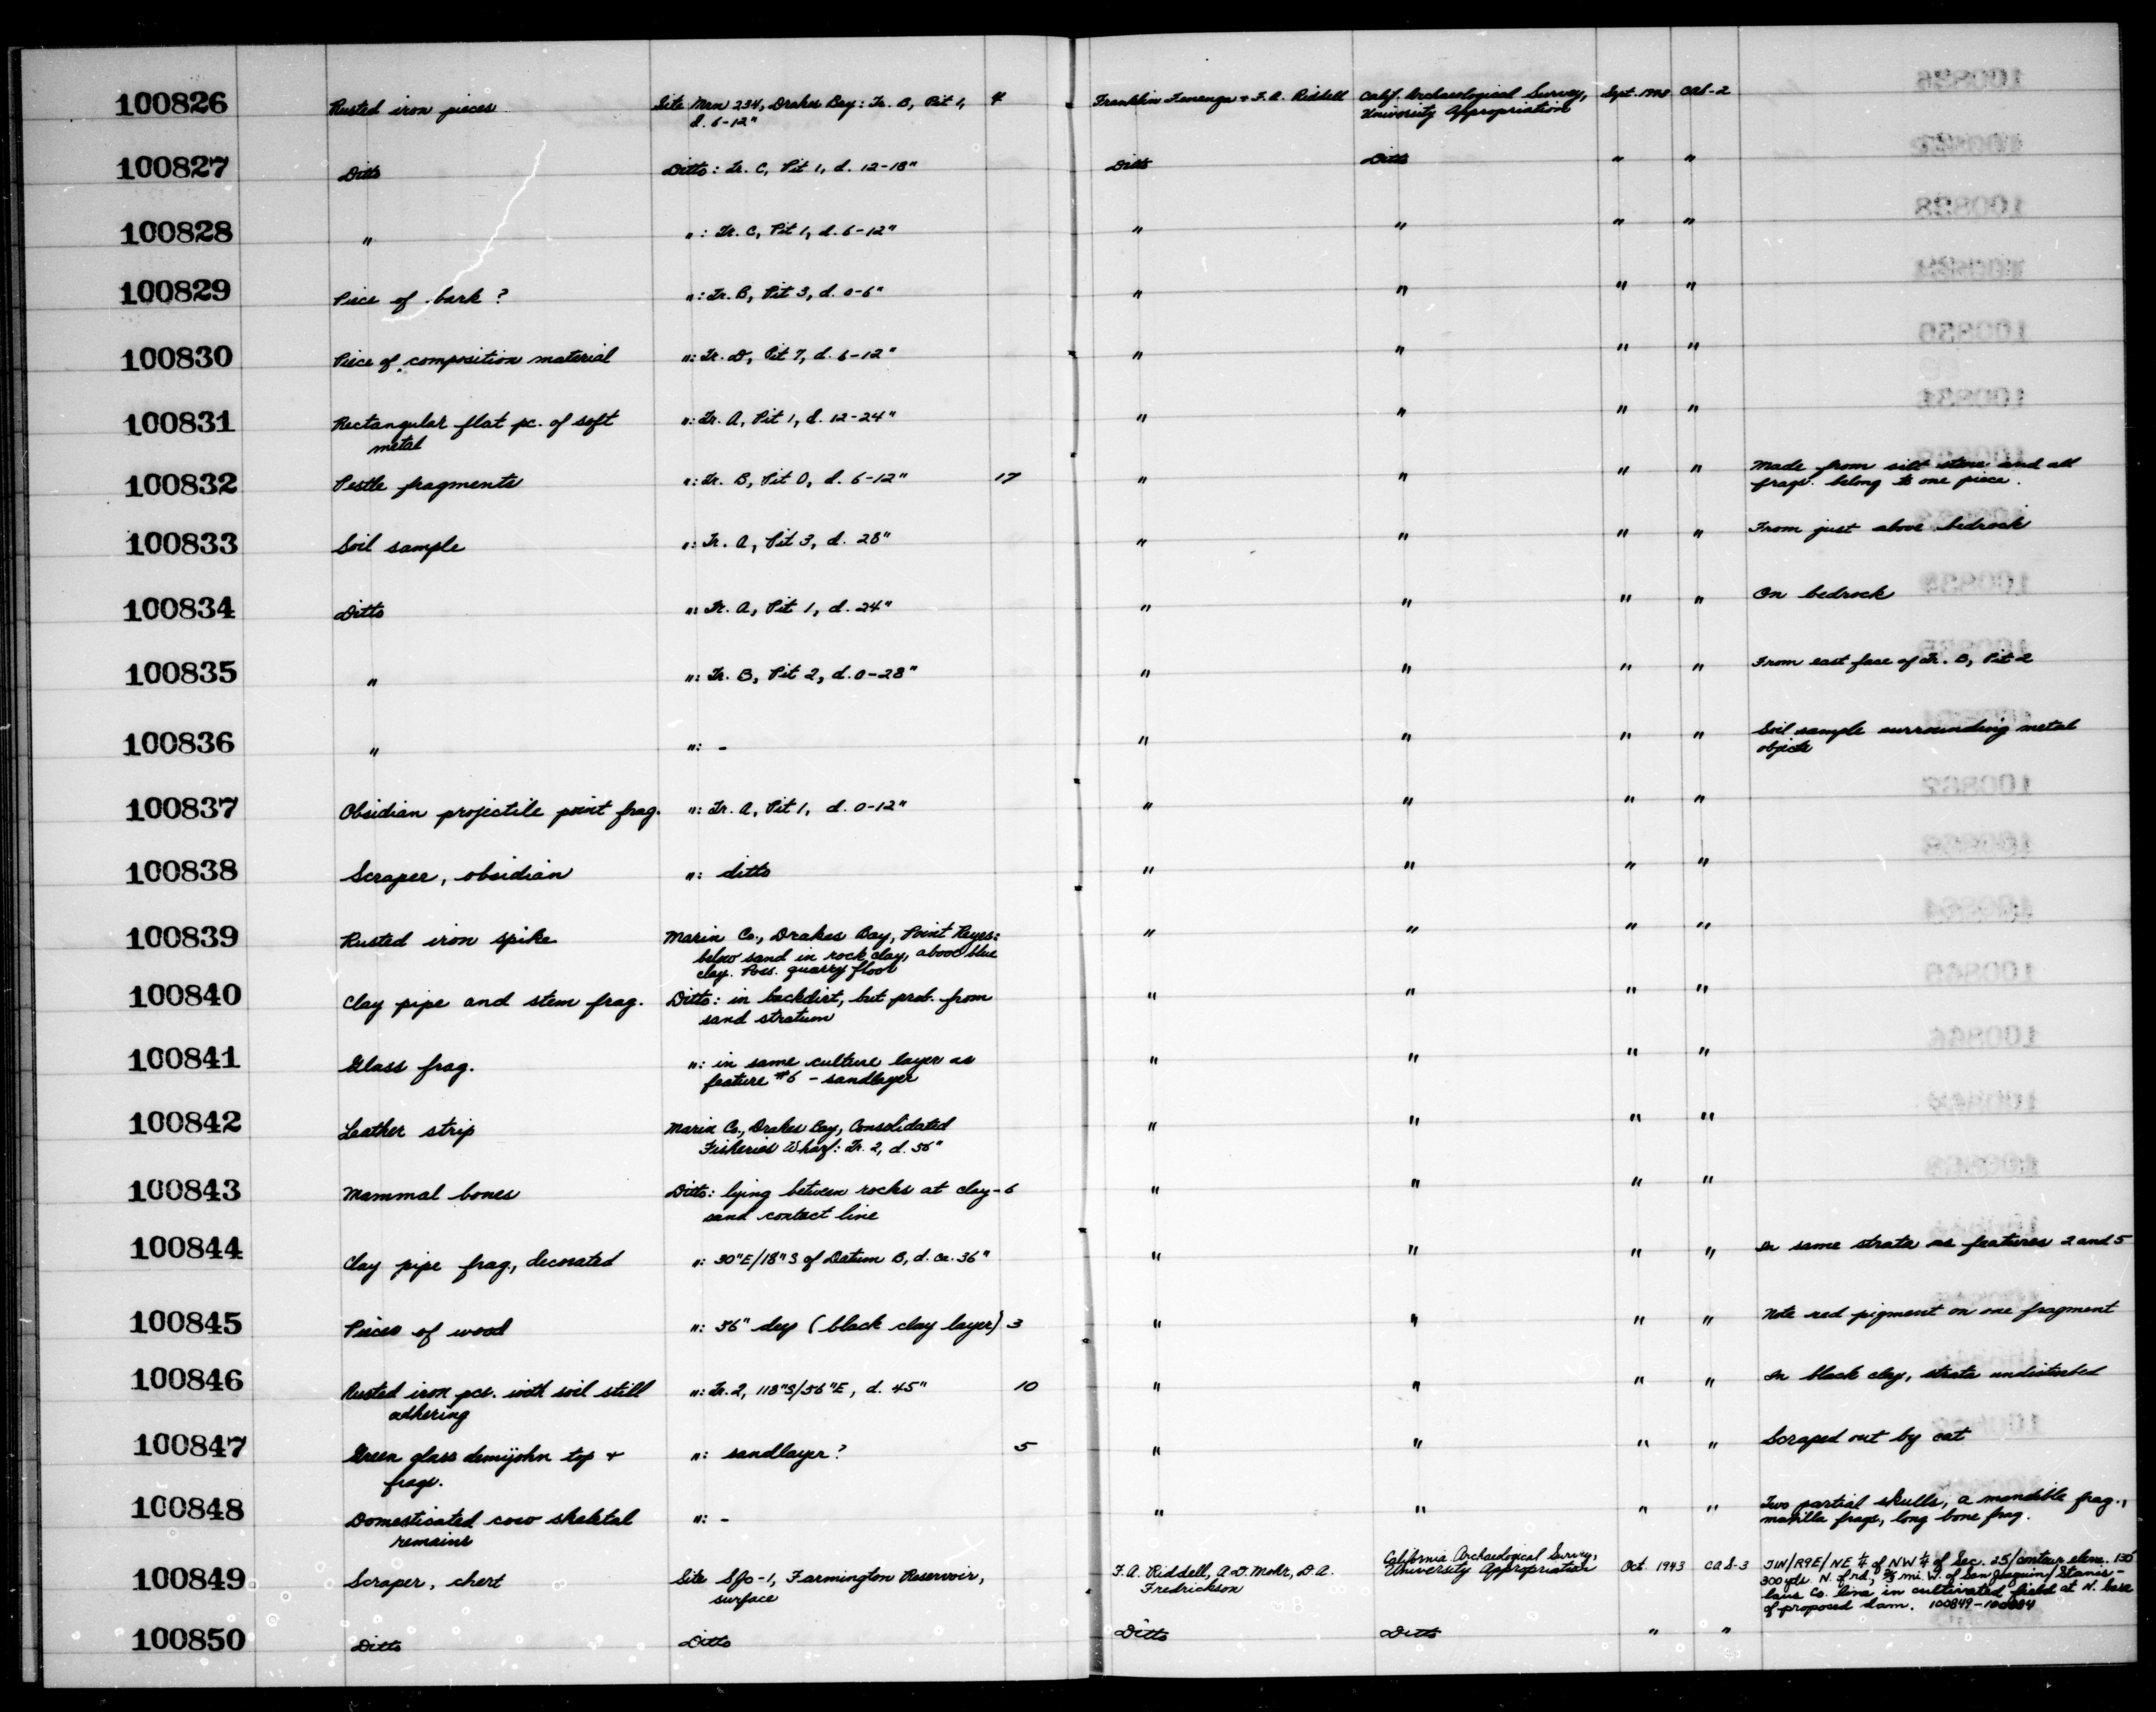 100826 Rusted iron pieces Site Mrn 234, Drakes Bay: Tr. B, Pit 1, 4 Franklin Fenenga & F.A. Riddell Calif. Archaeological Survey, Sept. CAS-2
d. 6-12" University Appropriation
100827 Ditto Ditto: Tr. C, Pit 1, d. 12-18" Ditto Ditto " "
100828 " ": Tr. C, Pit 1, d. 6-12" " " " "
100829 Piece of bark? ": Tr. B, Pit 3, d. 0-6" " " " "
100830 Piece of composition material ": Tr. D, Pit 7, d. 6-12" " " " "
100831 Rectangular flat pc. of soft ": Tr. A, Pit 1, d. 12-24" " " " "
metal
100832 Pestle fragments ": Tr. B, Pit 0, d. 6-12" 17 " " " " Made from silt stone and all
frags. belong to one piece.
100833 Soil sample ": Tr. A, Pit 3, d. 28" " " " " From just above bedrock
100834 Ditto ": Tr. A, Pit 1, d. 24" " " " " On bedrock
100835 " ": Tr. B, Pit 2, d. 0-28" " " " " From east face of Tr. B, Pit 2
100836 " ": - " " " " Soil sample surrounding metal
objects
100837 Obsidian projectile point frag. ": Tr. A, Pit 1, d. 0-12" " " " "
100838 Scraper, obsidian ": ditto " " " "
100839 Rusted iron spike Marin Co., Drakes Bay, Point Reyes: " " " "
below sand in rock clay, above blue
clay. Poss. quarry floor
100840 Clay pipe and stem frag. Ditto: in backdirt, but prob. from " " " "
sand stratum
100841 Glass frag. ": in same culture layer as " " " "
feature #6 - sandlayer
100842 Leather strip Marin Co., Drakes Bay, Consolidated " " " "
Fisheries Wharf: Tr. 2, d. 56"
100843 Mammal bones Ditto: lying between rocks at clay- 6 " " " "
sand contact line
100844 Clay pipe frag., decorated ": 30"E/18"S of Datum B, d. ca. 36" " " " " In same strata as features 2 and 5
100845 Pieces of wood ": 56" deep (black clay layer) 3 " " " " Note red pigment on one fragment
100846 Rusted iron pcs. with soil still ": Tr. 2, 118"S/56"E, d. 45" 10 " " " " In black clay, strata undisturbed
adhering
100847 Green glass demijohn top & ": sandlayer? 5 " " " " Scraped out by cat
frags.
100848 Domesticated cow skeletal ": - " " " " Two partial skulls, a mandible frag.,
remains maxilla frags, long bone frag.
100849 Scraper, chert Site SJo-1, Farmington Reservoir, F.A. Riddell, A.D. Mohr, D.A. California Archaeological Survey, Oct. 1943 CAS-3 T1N/R9E/NE ¼ of NW ¼ of Sec. 25/contour elev. 130'
surface Fredrickson University Appropriation 300 yds N. of rd., ⅔ mi. W. of San Joaquin/Stanis-
laus Co. line in cultivated field at N. base
of proposed dam. 100849-
100850 Ditto Ditto Ditto Ditto " "